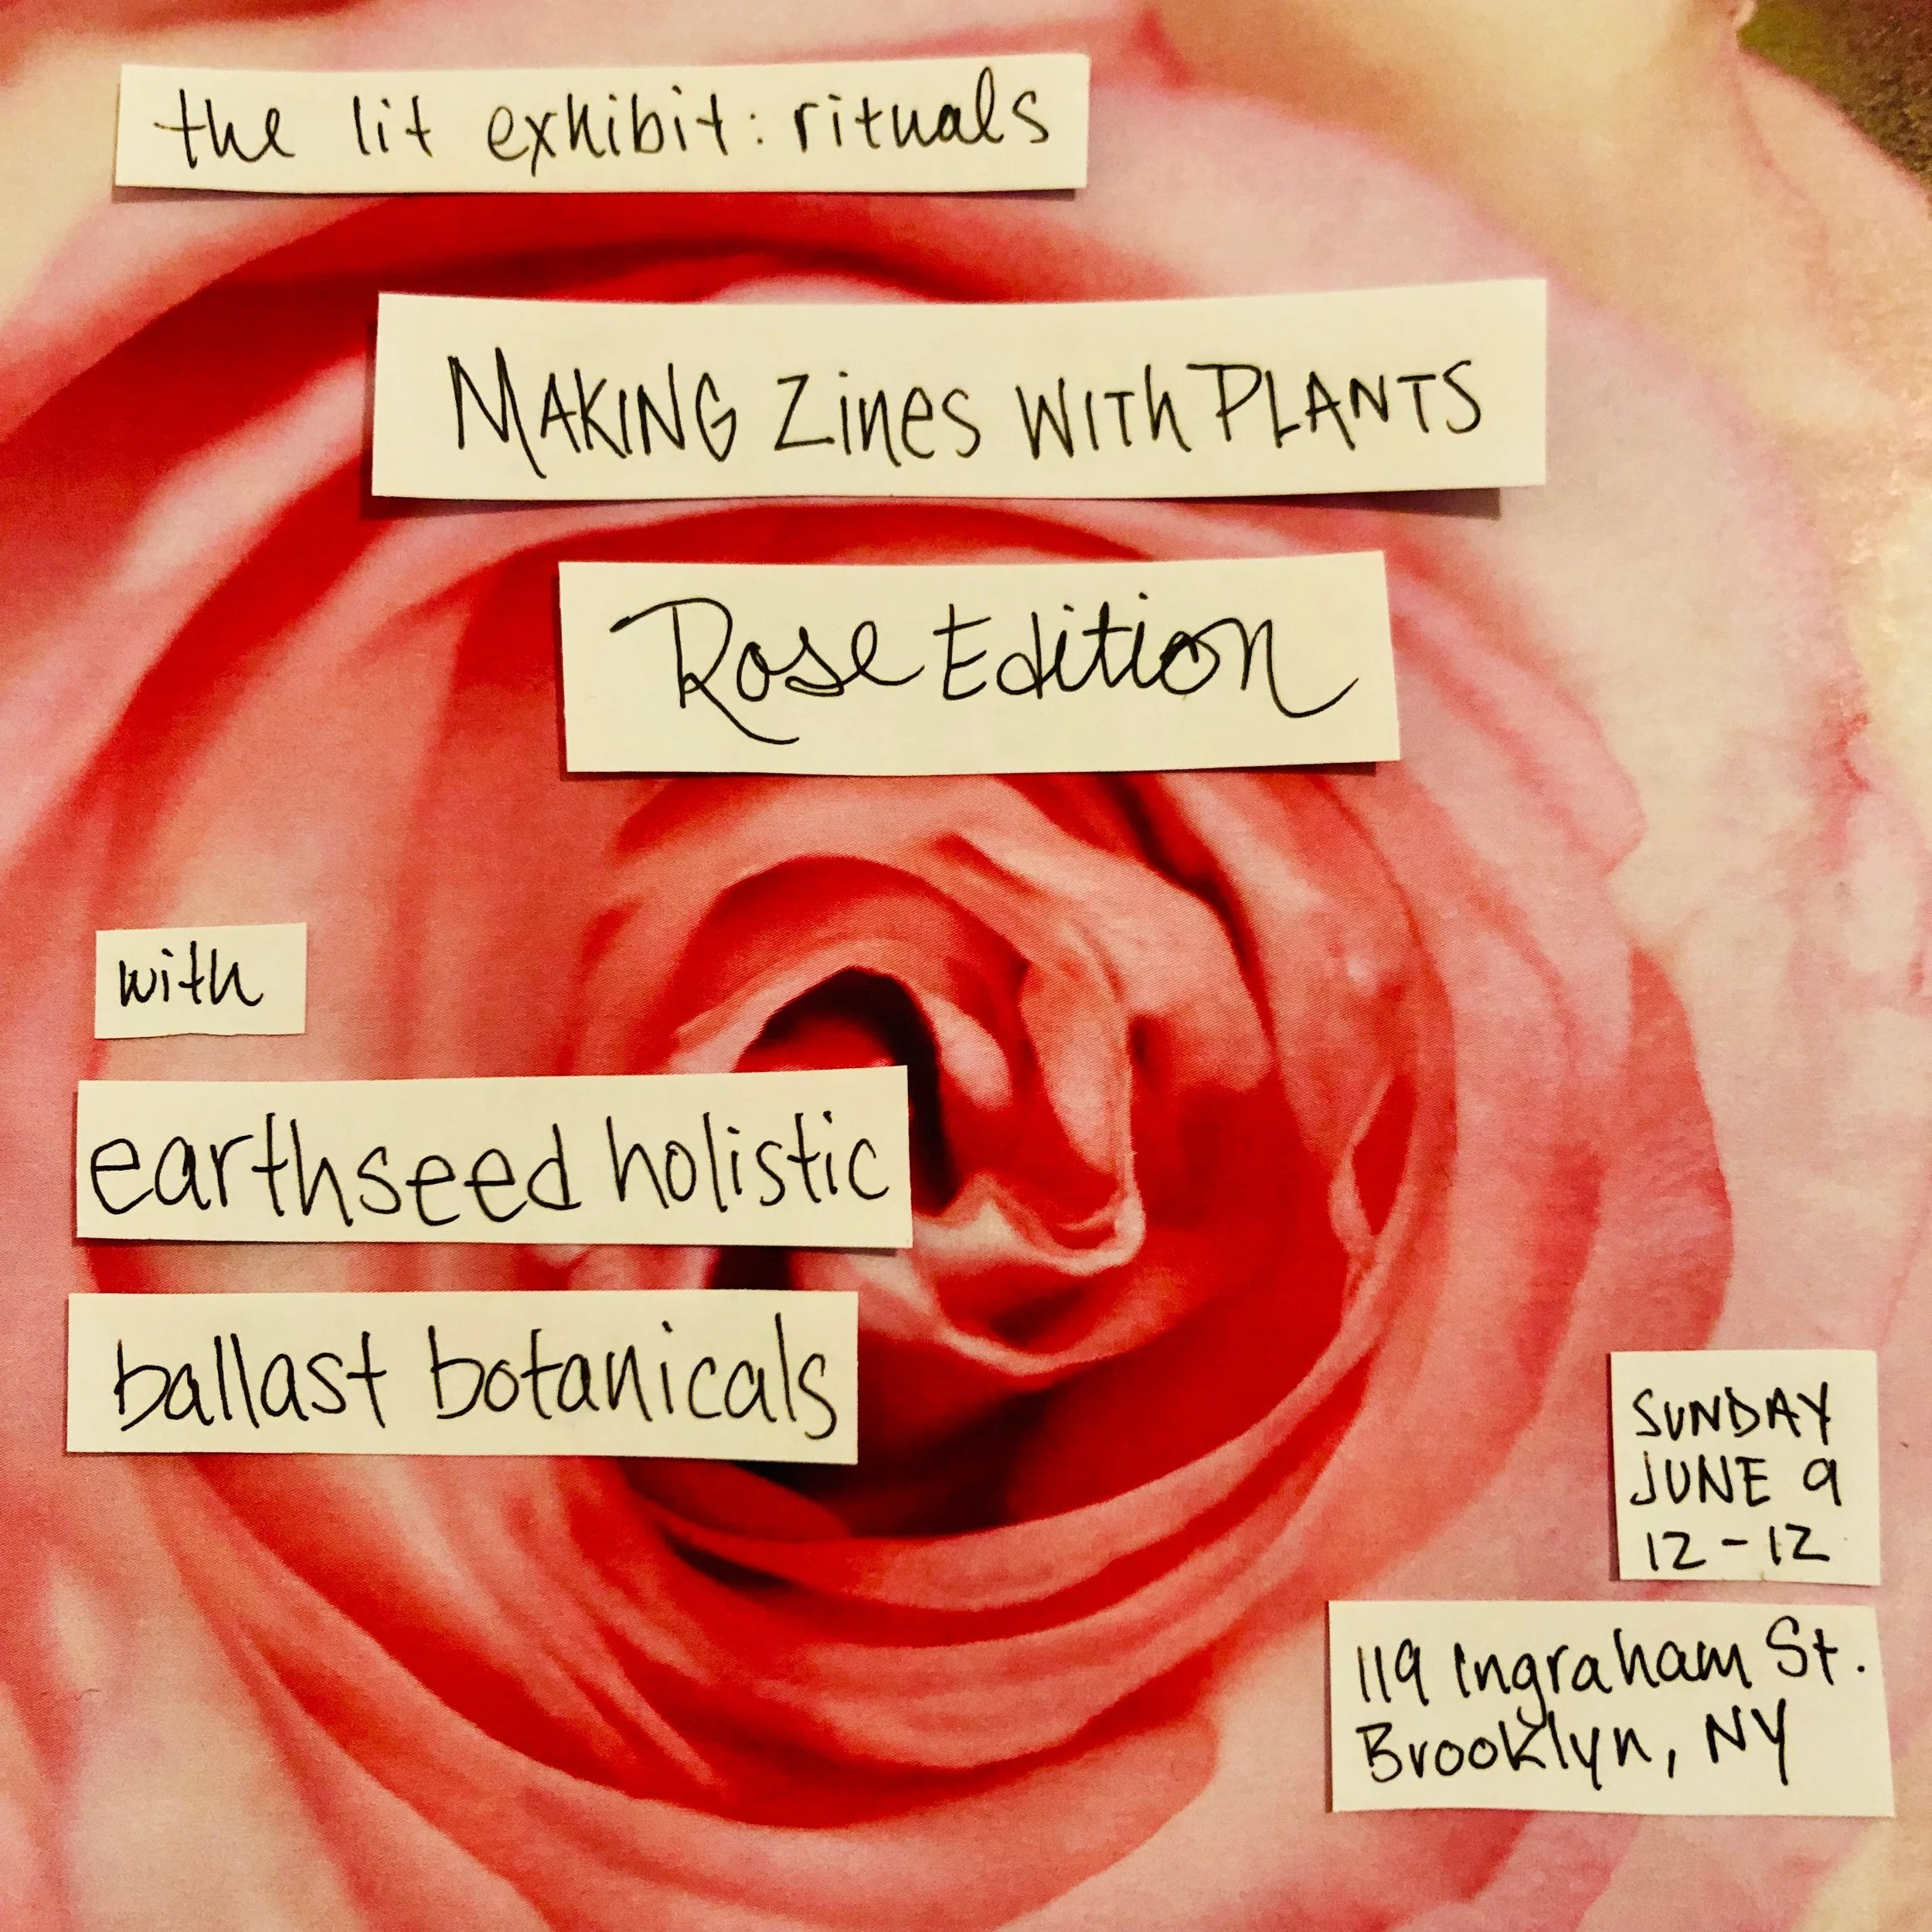 the lit exhibit: rituals
MAKING Zines WITh PLANTS
Rose Edition
with
earthseed holistic
ballast botanicals
SUNDAY
JUNE 9
12-12
119 Ingraham St.
Brooklyn, NY